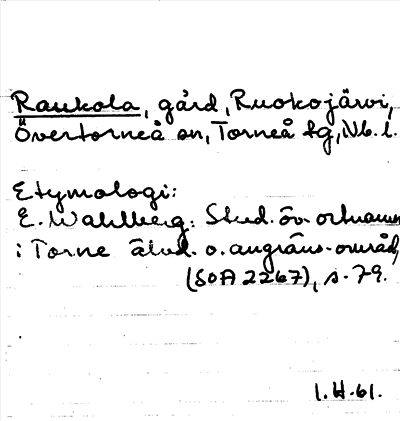 Raukola, gård, Ruokojärvi,
Övertorneå sn, Torneå tg, Nb. l.
Etymologi:
E. Wahlberg: Stud. öv. ortnamn
i Torne älvd. o. angräns. områd,
(SOA 2267), s. 79.
1. H. 61.